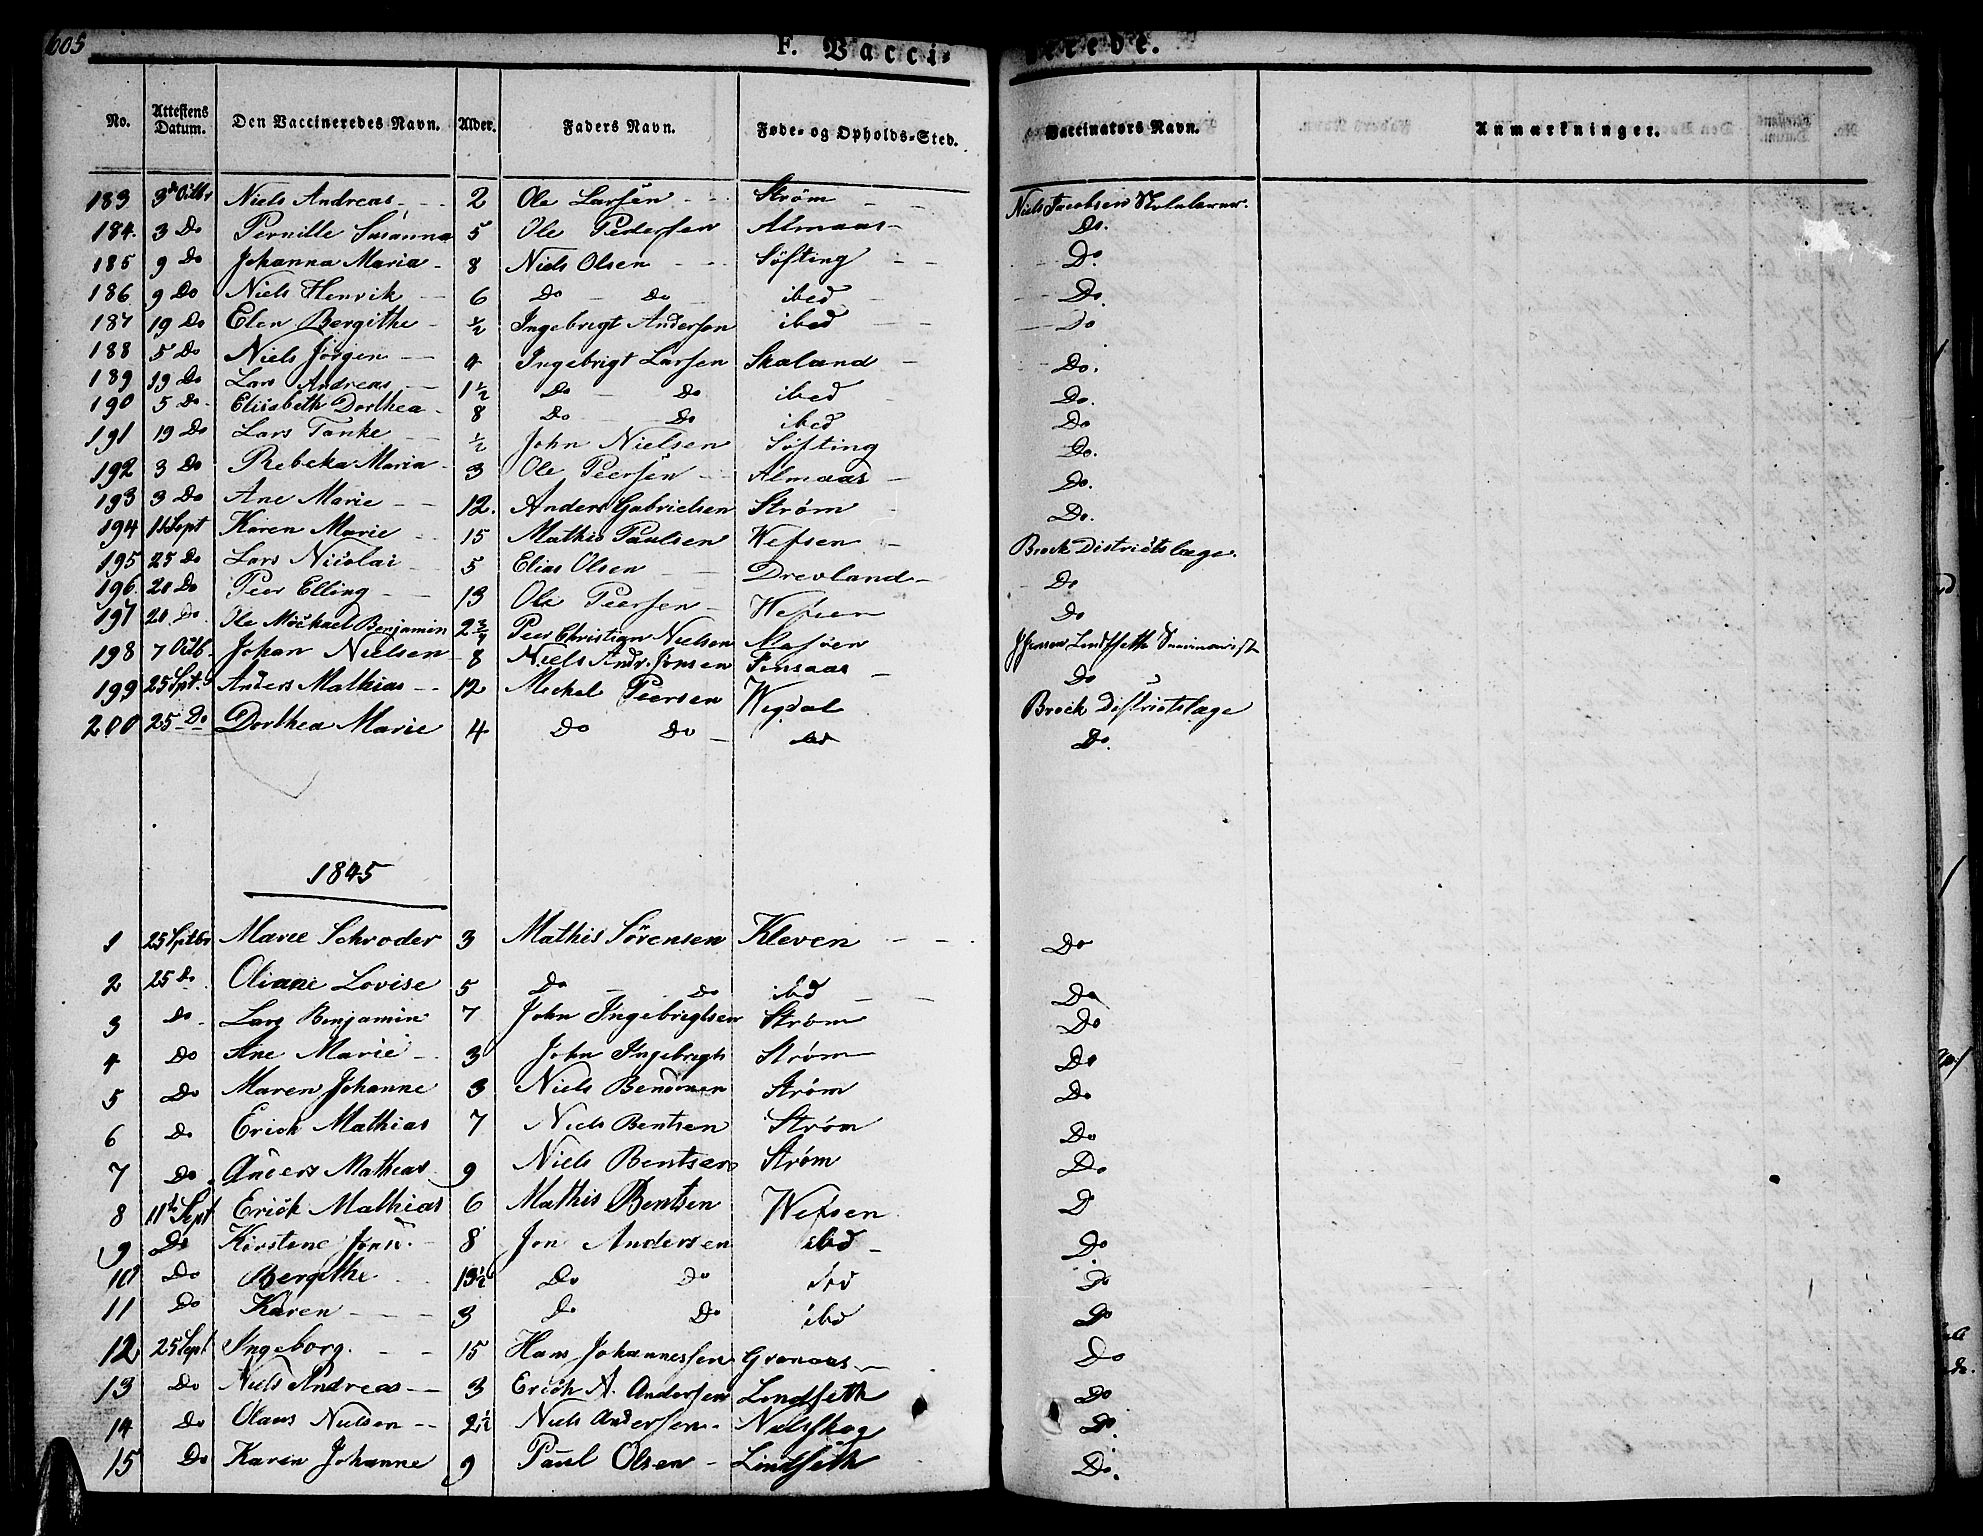 605
F. Vacci- nerede.
No. Attestens Datum. Den Vaccineredes Navn. Alder. Faders Navn. Føde- og Opholds-Sted. Vaccinators Navn. Anmærkninger.
183 3de Octbr Niels Andreas 2 Ole Larsen Strøm Niels Jacobsen Skolelærer.
184. 3 Do Pernille Susanna 5 Ole Pedersen Almaas Do.
185 9 Do Johanna Maria 8 Niels Olsen Söfting Do.
186 9 Do Niels Henrik 6 Do Do ibed Do.
187 19 Do Elen Bergithe ½ Ingebrigt Andersen ibed Do
188 5 Do Niels Jörgen 4 Ingebrigt Larsen Skaland Do.
189 19 Do Lars Andreas 1½ Do Do ibed Do.
190 5 Do Elisabeth Dorthea 8 Do Do ibed Do
191 19 Do Lars Tanke ½ John Nielsen Söfting Do.
192 3 Do Rebeka Maria 3 Ole Peersen Almaas Do.
193 3 Do Ane Marie 12. Anders Gabrielsen Strøm Do.
194 11 Sept Karen Marie 15 Mathis Paulsen Wefsen Brock Districtslæge.
195 25 Do Lars Nicolai 5 Elias Olsen Drevland Do
196. 20 Do Peer Elling 13 Ole Peersen Wefsen Do
197 20 Do Ole Michael Benjamin 2¾ Peer Christian Nielsen J Jensen Lindseth
198 7 Octb. Johan Nielsen 8 Niels Andr. Jonsen Finsaas Do
199 25 Sept. Anders Mathias 12 Mickel Peersen Wegdal Brock Districtslæge
200 25 Do Dorthea Marie 4 Do Do ibd Do.
1845
1 25 Septbr Maree Schroder 3 Mathis Sörensen Kleven Do
2 25 Do Oliane Lovise 5 Do Do ibd Do
3 do Lars Benjamin 7 John Ingebregtsen Strøm Do
4 Do Ane Marie 3 John Ingebregts Strøm Do
5 Do Maren Johanne 3 Niels Strøm Do
6 Do Erich Mathias 7 Niels Bentsen Strøm Do
7 Do Anders Mathias 9 Niels Bentsen Strøm Do
8 11te Sept Erick Mathias 6 Mathis Bentsen Wefsen D
9 Do Kirstene 8 Jon Andersen ibd Do.
10 Do Bergethe 13½ Do Do ibd Do
11 Do Karen 3 Do Do ibd Do
12 25 Sept Ingeborg. 15 Hans Johannessen Granaas Do
13 Do Niels Andreas 3 Erich A. Andersen Lindseth Do
14 Do Olaus Nielsen 2½ Niels Andersen Nilsskog Do.
15 Do Karen Johanne 9 Paul Olsen Lindseth Do.